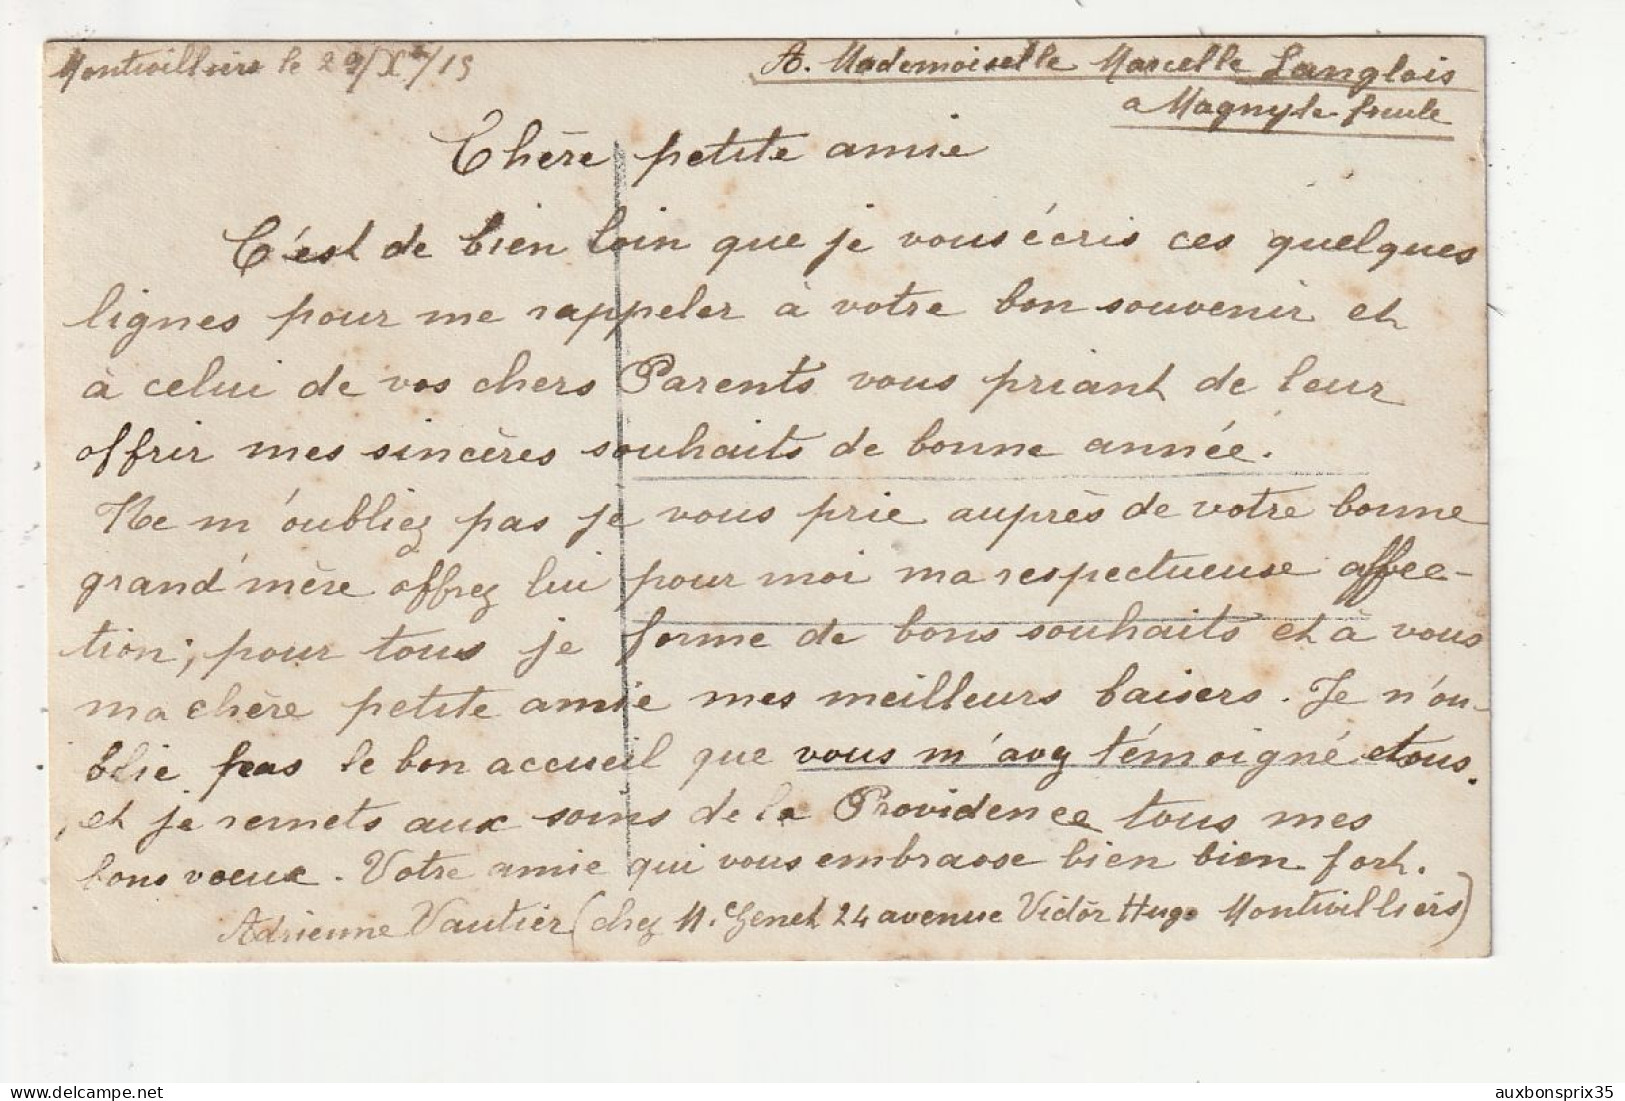 Montivilliers le 29/Xbre/15
A. Mademoiselle Marcelle Langlois
a Magny le freule
Chère petite amie
C'est de bien loin que je vous écris ces quelques
lignes pour me rappeler à votre bon souvenir et
à celui de vos chers Parents vous priant de leur
offrir mes sincères souhaits de bonne année.
Ne m'oubliez pas je vous prie auprès de votre bonne
grand'mère offrez lui pour moi ma respectueuse affec-
tion; pour tous je forme de bons souhaits et à vous
ma chère petite amie mes meilleurs baisers. Je n'ou-
blie pas le bon accueil que vous m'avez témoigné tous.
et je remets aux soins de la Providence tous mes
bons voeux. Votre amie qui vous embrasse bien bien fort.
Adrienne Vautier (chez M. Genet 24 avenue Victor Hugo Montivilliers)
auxbonsprix35